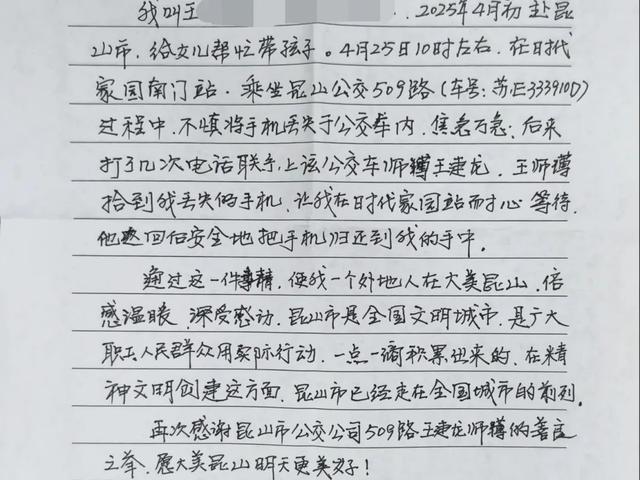 我叫王 ..2025年4月初赴昆
山市，给女儿帮忙带孩子。4月25日10时左右，在时代
家园南门站，乘坐昆山公交509路（车号：苏E33910D）
过程中，不慎将手机丢失于公交车内，焦急万急，后来
打了几次电话联系上该公交车师傅王建龙，王师傅
拾到我丢失的手机，让我在时代家园站耐心等待，
他返回后安全地把手机归还到我的手中。
通过这一件事情，使我一个外地人在大美昆山，倍
感温暖，深受感动，昆山市是全国文明城市，是广大
职工人民群众用实际行动，一点一滴积累出来的，在精
神文明创建这方面，昆山市已经走在全国城市的前列。
再次感谢昆山市公交公司509路王建龙师傅的善良
之举，愿大美昆山明天更美好！